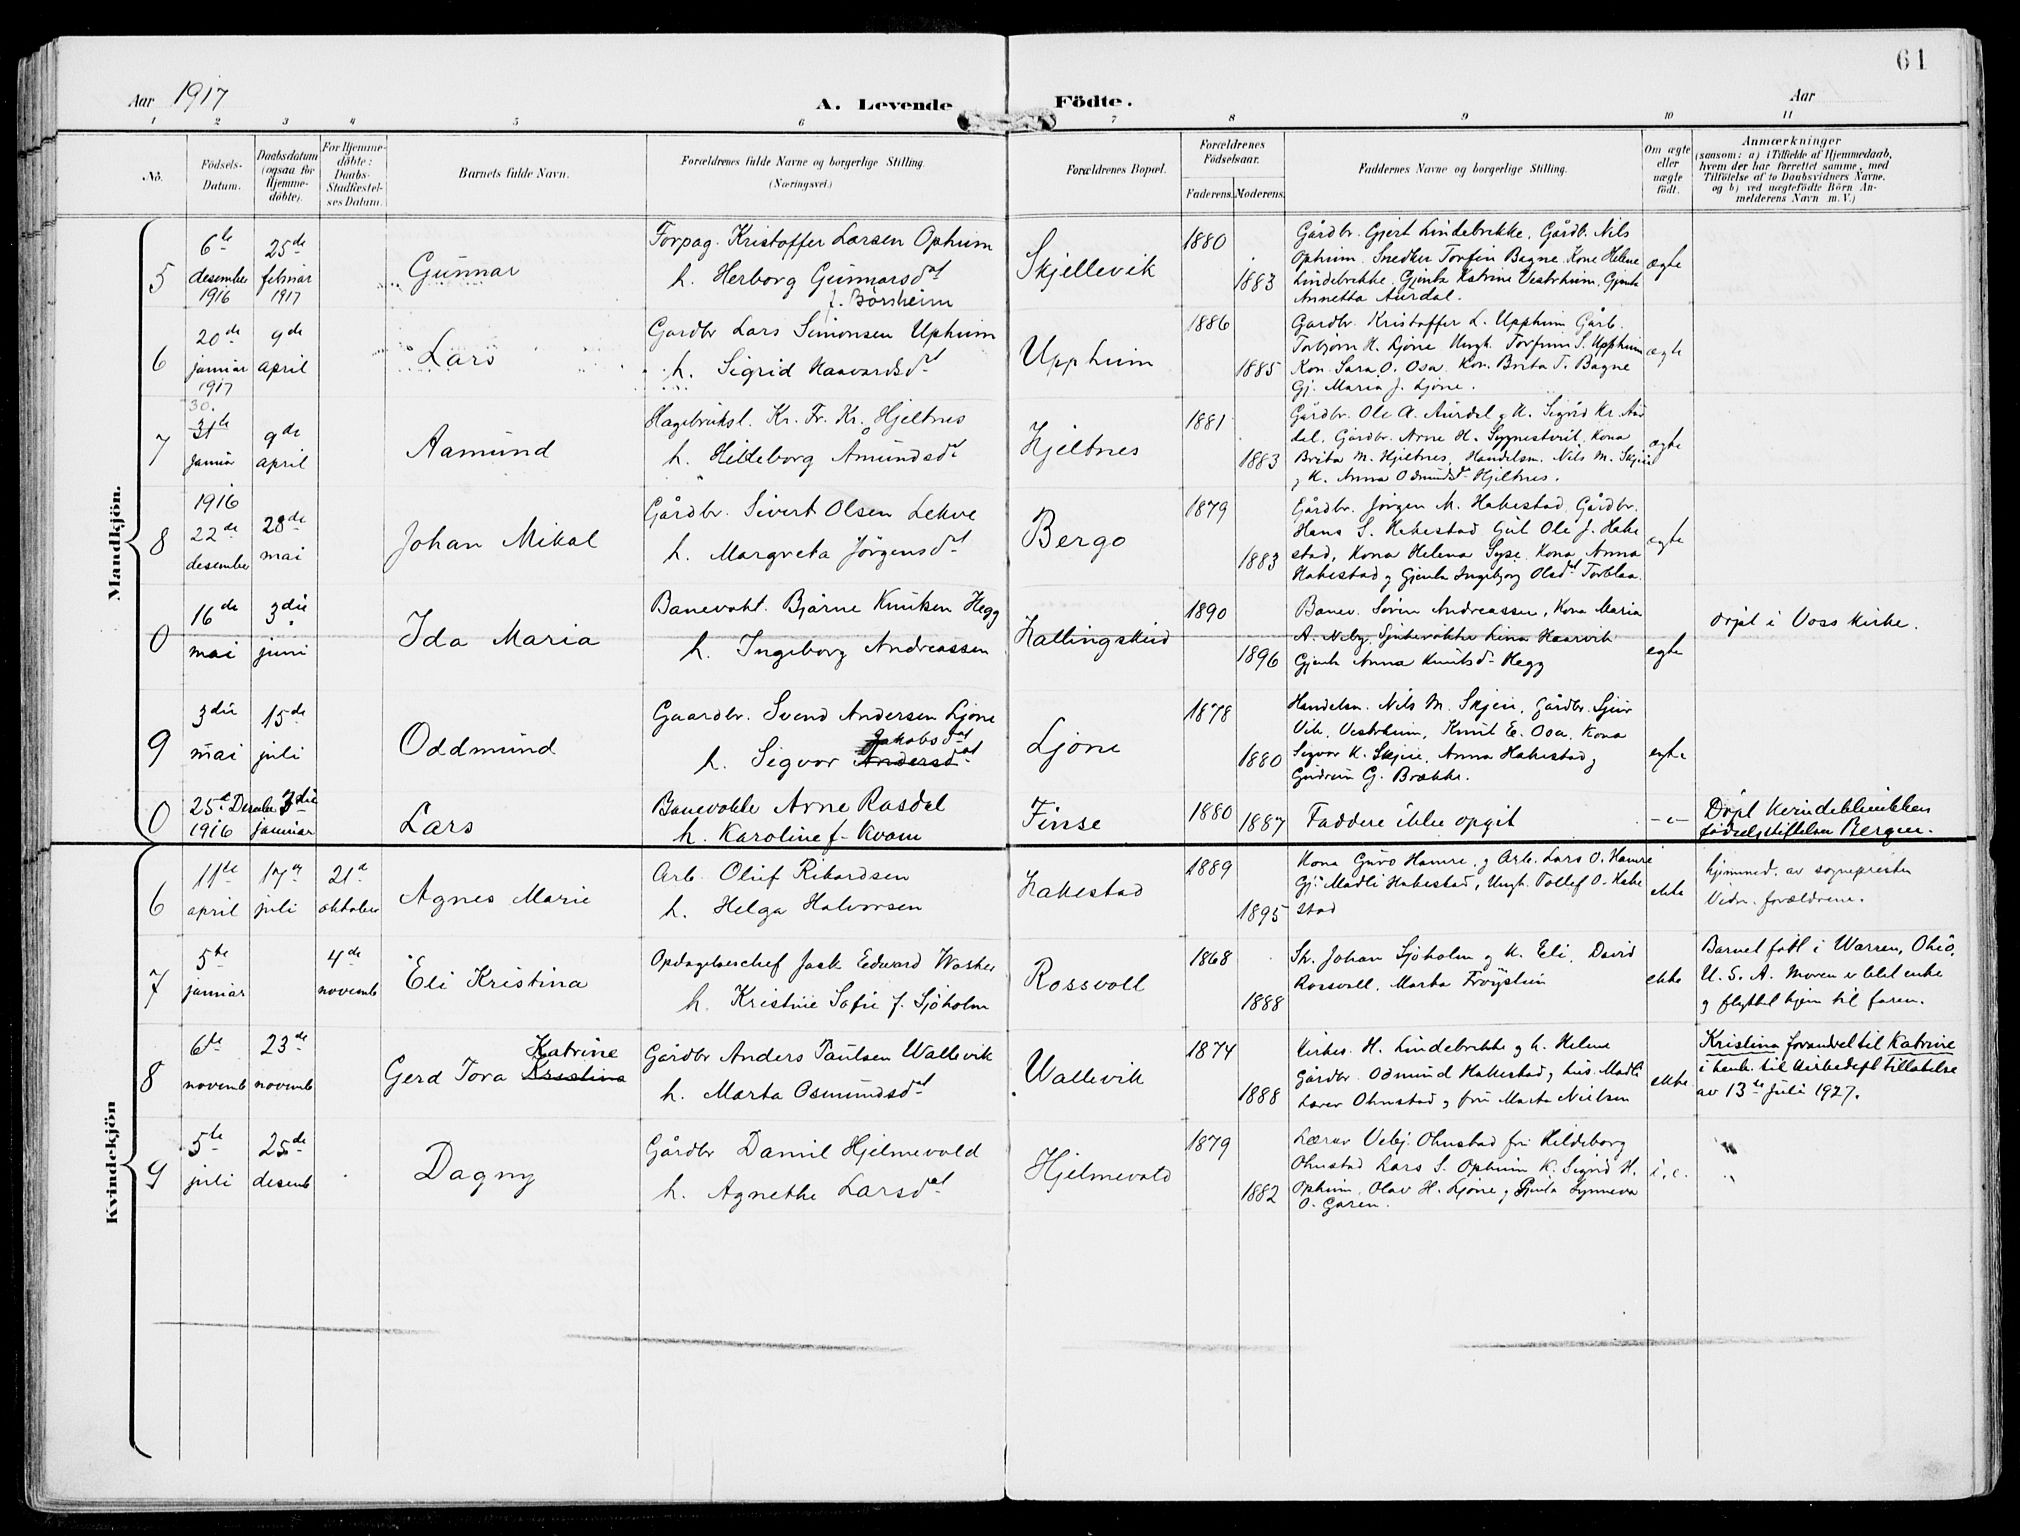 61
Aar 1917
A. Levende Födte.
Aar
1 2 3 4 5 6 7 8 9 10 11
No.
Födsels-Datum.
Daabsdatum (ogsaa for Hjemme-döbte).
For Hjemme-döbte: Daabs-Stadfæstel-ses Datum.
Barnets fulde Navn.
Forældrenes fulde Navne og borgerlige Stilling.
(Næringsvei.)
Forældrenes Bopæl.
Forældrenes Födselsaar.
Faderens. Moderens.
Faddernes Navne og borgerlige Stilling.
Om ægte eller uægte födt.
Anmærkninger
(saasom: a) i Tilfælde af Hjemmedaab,
hvem der har forrettet samme, med
Tilföielse af to Daabsvidners Navne,
og b) ved uægtefödte Börn An-
melderens Navn m. V.)
Mandkjön.
5
6te desember 1916
25de februar 1917
Gunnar
Forpag. Kristoffer Larsen Opheim
h. Herborg Gunnarsdat
f. Børsheim
Skjellevik
1880
1883
Gårdbr. Gjert Lindebrekke, Gårdb. Nils
Opheim. Snedker Torfin Bagne. Kone Helene
Lindebrekke. Gjenta Katrine Vestrheim, Gjenta
Annetta Aurdal.
ægte
6
20de januar 1917
9de april
Lars
Gardbr Lars Simonsen Upheim
h. Sigrid Haavardsdt
Uppheim
1886
1885
Gardbr. Kristoffer L. Uppheim Gårb.
Torbjørn H. Ljone Ungk. Torfinn S. Uppheim
Kon. Sara O. Osa. Kon. Brita T. Bagne
Gj. Maria J. Ljone.
ægte
7
30.
31te januar
9de april
Aamund
Hagebruksl. Kr. Fr. Kr. Hjeltnes
h. Hildeborg Åmundsdt
Hjeltnes
1881
1883
Gårdbr. Ole A. Aurdal g K. Sigrid Kr. Aur
dal, Gårdbr. Arne H. Sygnestveit, Kona
Brita M. Hjeltnes, Handelsm. Nils M. Skjeie
g K. Anna Odmundsdt Hjeltnes.
ægte
8
1916
22de desember
28de mai
Johan Mikal
Gårdbr. Sivert Olsen Lekve
h. Margreta Jørgensdt
Bergo
1879
1883
Gårdbr. Jørgen M. Hakestad, Gårdbr.
Hans S. Hakestad Gut Ole J. Hake
stad, Kona Helena Syse, Kona Anna
Hakestad g Gjenta Ingebjorg Olsdt Torblaa.
ægte
0
16de mai
3die juni
Ida Maria
Banevokt. Bjarne Knutsen Hegg
h. Ingeborg Andreassen
Hallingskeid
1890
1896
Banev. Søren Andreassen, Kona Maria
A. Neby, Sjukevøkte Lina Haarvik
Gjenta Anna Knutsd. Hegg
egte
døpt i Voss Kirke.
9
3die mai
15de juli
Oddmund
Gaardbr. Svend Andersen Ljone
h. Sigvor Andersdt Jakobsdat
Ljone
1878
1880
Handelsm. Nils M. Skjeie, Gårdbr. Sjur
Vik, Vestrheim, Knut E. Osa, Kona
Sigvor K. Skjeie, Anna Hakestad g
Gudrun G. Brække.
egte
0
25de December 1916
3die januar
Lars
Banevokte Arne Rasdal
h. Karoline f. Kvam
Finse
1880
1887
Faddere ikke opgit
-"-
Døpt Kvindeklinikken
fødselsstiftelsen Bergen.
Kvindekjön
6
11te april
17de juli
21de oktober
Agnes Marie
Arb. Oluf Rikardsen
h. Helga Halvorsen
Hakestad
1889
1895
Kona Guro Hamre, g Arb. Lars O. Hamre
Gj. Madli Hakestad, Ungk. Tollef O. Hake
stad
ekte
hjemmed. av sognepresten
Vidn. forældrene.
7
5te januar
4de novemb
Eli Kristina
Opdagelseschef Jack Edward Washer
h. Kristine Sofie f. Sjøholm
Rossvoll
1868
1888
Sk. Johan Sjøholm g K. Eli, David
Rossvoll, Marta Frøystein
ekte
Barnet født i Warren, Ohio,
U. S. A. Moren er blit enke
g flyttet hjem til faren.
8
6te novemb
23de novemb
Gerd Tora Kristina Katrine
Gårdbr Anders Paulsen Wallevik
h. Marta Osmundsdt
Wallevik
1874
1888
Kirkes. H. Lindebrekke g h. Helene
Gårdbr. Odmund Hakestad g hus. Madli
Lærer Ohnstad g fru Marta Nielsen
ekte
Kristina forandret til Katrine
i henh. til Airbedepts tillatelse
av 13de Juli 1927.
9
5te juli
25de desemb
Dagny
Gårdbr Daniel Hjelmevold
h. Agnethe Larsdt
Hjelmevold
1879
1882
Lærer Vebj. Ohnstad fru Hildeborg
Ohnstad Lars S. Opheim K. Sigrid H.
Opheim, Olav H. Ljone g Gjenta Synneva
O. Garen.
i.e.